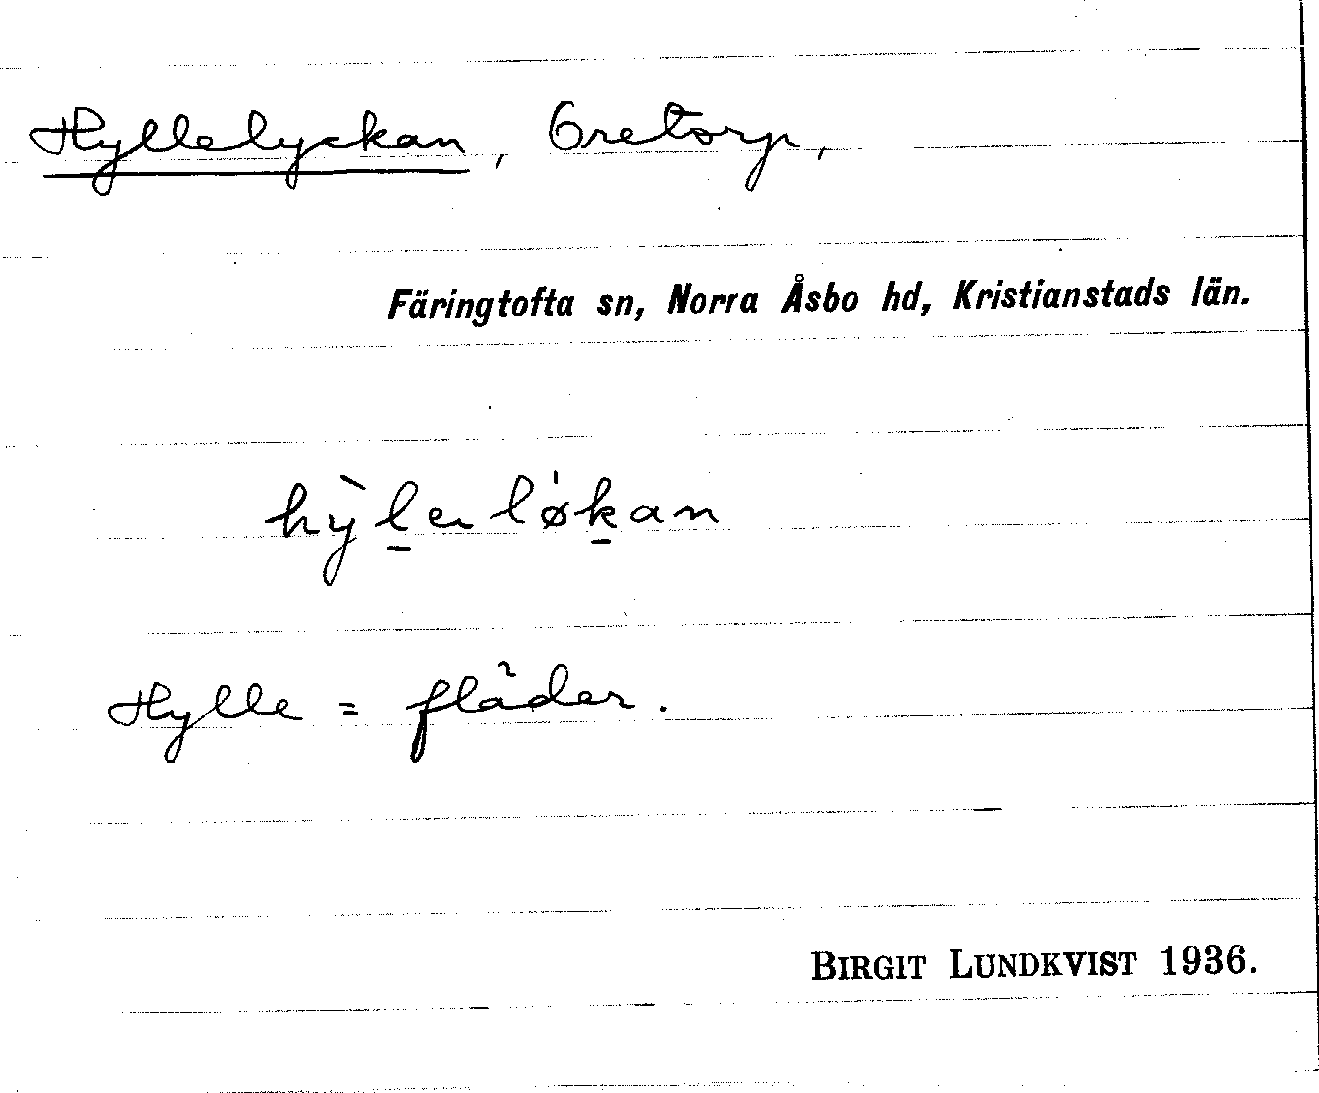 Hyllelyckan, Oretorp,
Färingtofta sn, Norra Åsbo hd, Kristianstads län.
hỳl̠er lø̍k̠an
Hylle = fläder.
BIRGIT LUNDKVIST 1936.